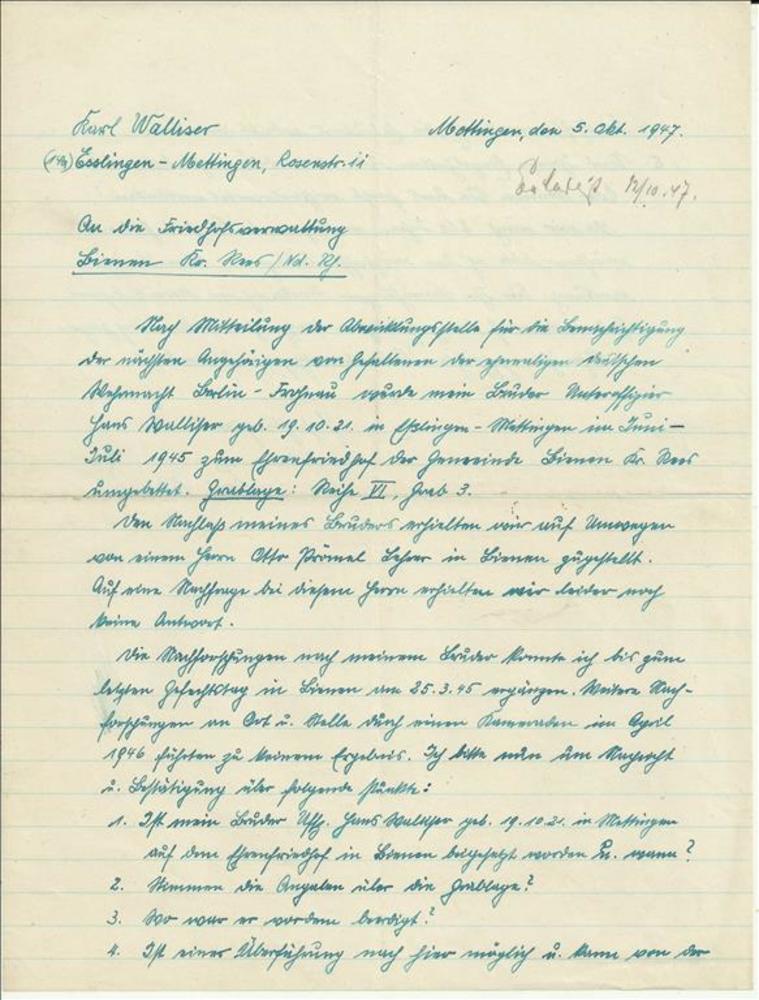 Karl Walliser
Mettingen, den 5. Okt. 1947.
(14a) Esslingen - Mettingen, Rosenstr. 11
12/10.47.
An die Friedhofsverwaltung
Bienen Kr. Rees / Nd. Rh.
Nach Mitteilung der Abwicklungsstelle für die Benachrichtigung
der nächsten Angehörigen von Gefallenen der ehemaligen deutschen
Wehrmacht Berlin - Frohnau wurde mein Bruder Unteroffizier
Hans Walliser geb. 19.10.21. in Esslingen - Mettingen im Juni -
Juli 1945 zum Ehrenfriedhof der Gemeinde Bienen Kr. Rees
umgebettet. Grablage: Reihe VI, Grab 3.
Den Nachlaß meines Bruders erhielten wir auf Umwegen
von einem Herrn Otto Prömel Lehrer in Bienen zugestellt.
Auf eine Nachfrage bei diesem Herrn erhielten wir leider noch
keine Antwort.
Die Nachforschungen nach meinem Bruder konnte ich bis zum
letzten Gefechtstag in Bienen am 25.3.45 ergänzen. Weitere Nach-
forschungen an Ort u. Stelle durch einen Kameraden im April
1946 führten zu keinem Ergebnis. Ich bitte nun um Nachricht
u. Bestätigung über folgende Punkte:
1. Ist mein Bruder Uffz. Hans Walliser geb. 19.10.21. in Mettingen
auf dem Ehrenfriedhof in Bienen beigesetzt worden u. wann?
2. Stimmen die Angaben über die Grablage?
3. Wo war er vordem beerdigt?
4. Ist eine Überführung nach hier möglich u. kann von der